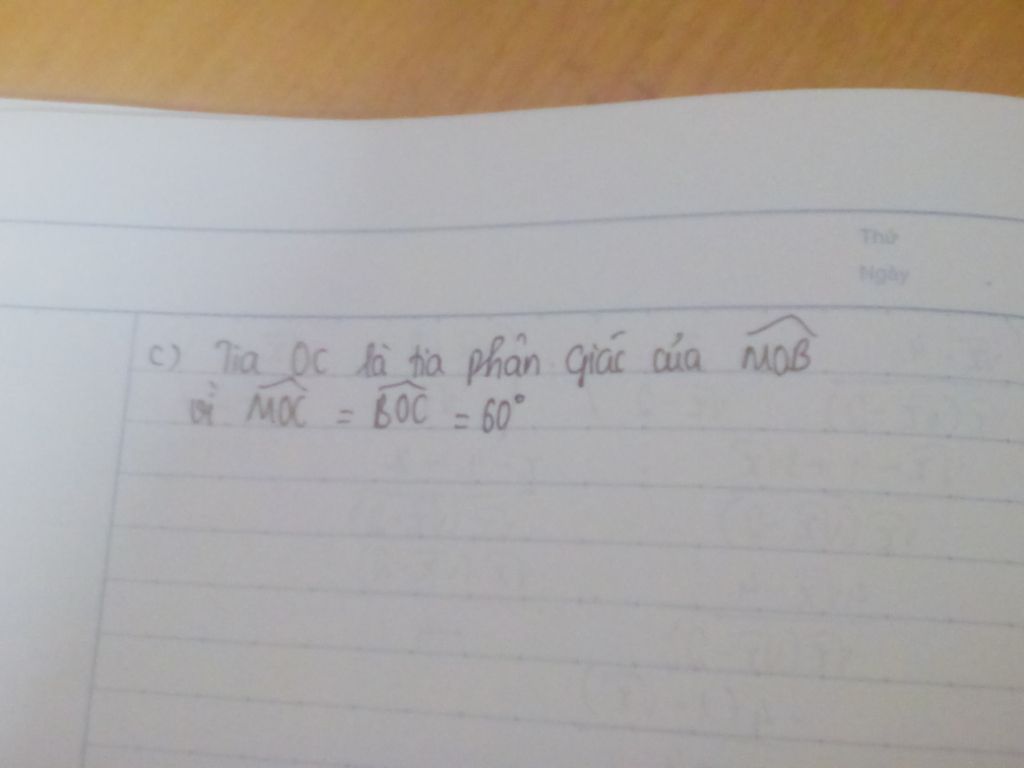 Thứ
Ngày
c) Tia OC là tia phân giác của $\widehat{MOB}$
vì $\widehat{MOC}$ = $\widehat{BOC}$ = 60°